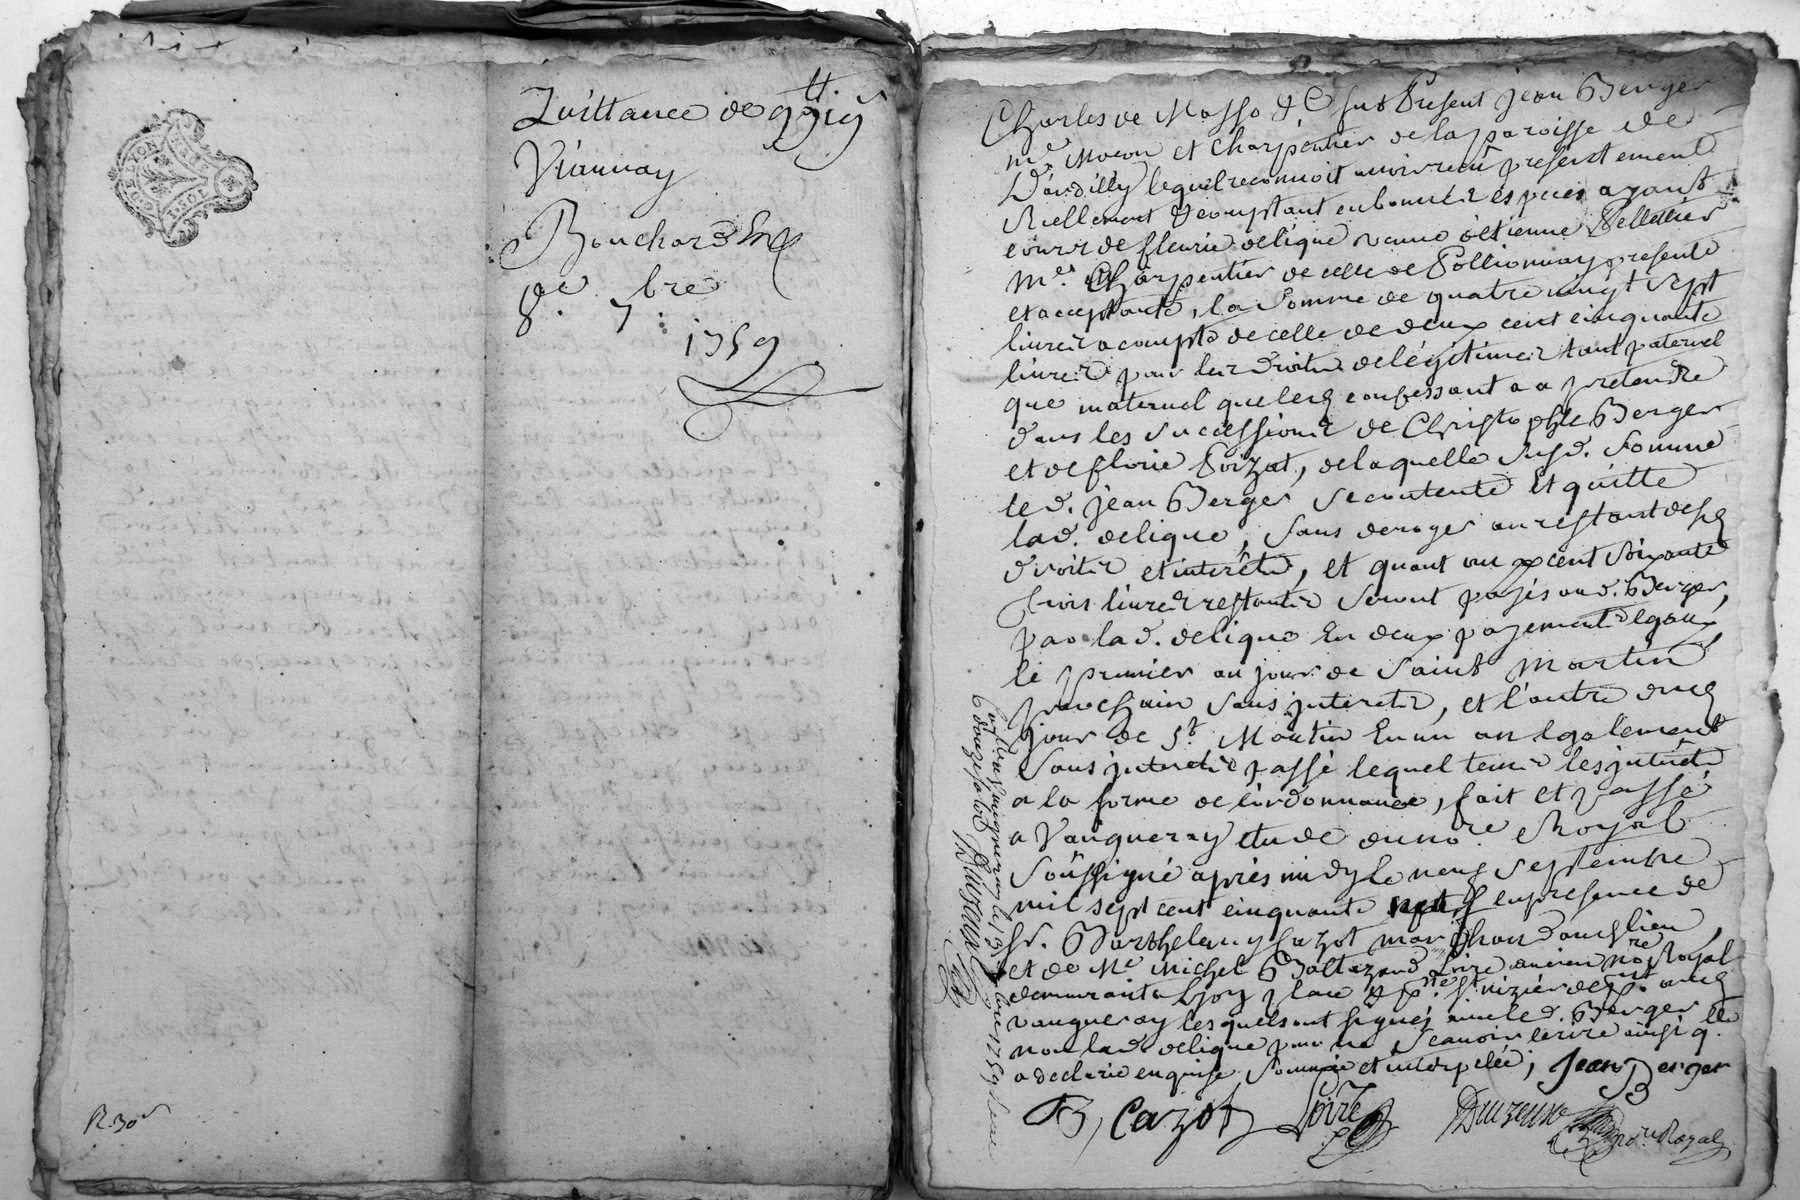 Quittance de 97 lt
Viannay
Bouchard
8e. 7bre
1759
R. 30s
Charles de Masso &c fut Present jean Berger
me Macon et Charpentier de la paroisse de
Dardilly lequel reconnoit avoir reçû presentement
Reellement & comptant en bonnes espèces ayant
cours de fleurie delique veuve d'etienne Pelletier
me. Charpentier de celle de Pollionnay presente
et acceptante, la Somme de quatre vingt Sept
livres acompte de celle de deux cent cinquante
livres pour les droits de légitimes tant paternel
que maternel que led confessant a a pretendre
dans les Successions de Christophle Berger
et de florie Poizat, de laquelle susd. Somme
led. jean Berger Se contente Et quitte
lad. delique, Sans deroger au restant desd
droits et interêts, et quant aux cent Soixante
trois livres restantes Seront payés aud. Berger,
par lad. delique En deux payements Egaux,
le premier au jour de Saint Martin
prochain Sans interets, et l'autre dud
jour de St. Martin En un an Egalement
Sans interets passé lequel tems les interêts
a la forme de l'ordonnance, fait et passé
a Vaugneray etude du nore. Royal
Soussigné après midy le neuf Septembre
mil sept cent cinquante neuf en presence de
Sr. Barthelemy Cazot marchand aud lieu,
et de Me Michel Baltazard Loire ancien nore Royal
demeurant a Lyon place & psse. St nizier de pnt. aud
vaugneray lesquels ont signés avec led. Berger Et
non lad. delique pour ne Scavoir Ecrire ainsi q. lle
a declaré enquise Sommée et interpelée; Jean Berger
B, Cazot Loire Duzeux nore Royal
Conlle a vaugneray le 13 7bre 1759 Reçu
douze sols Duzeux